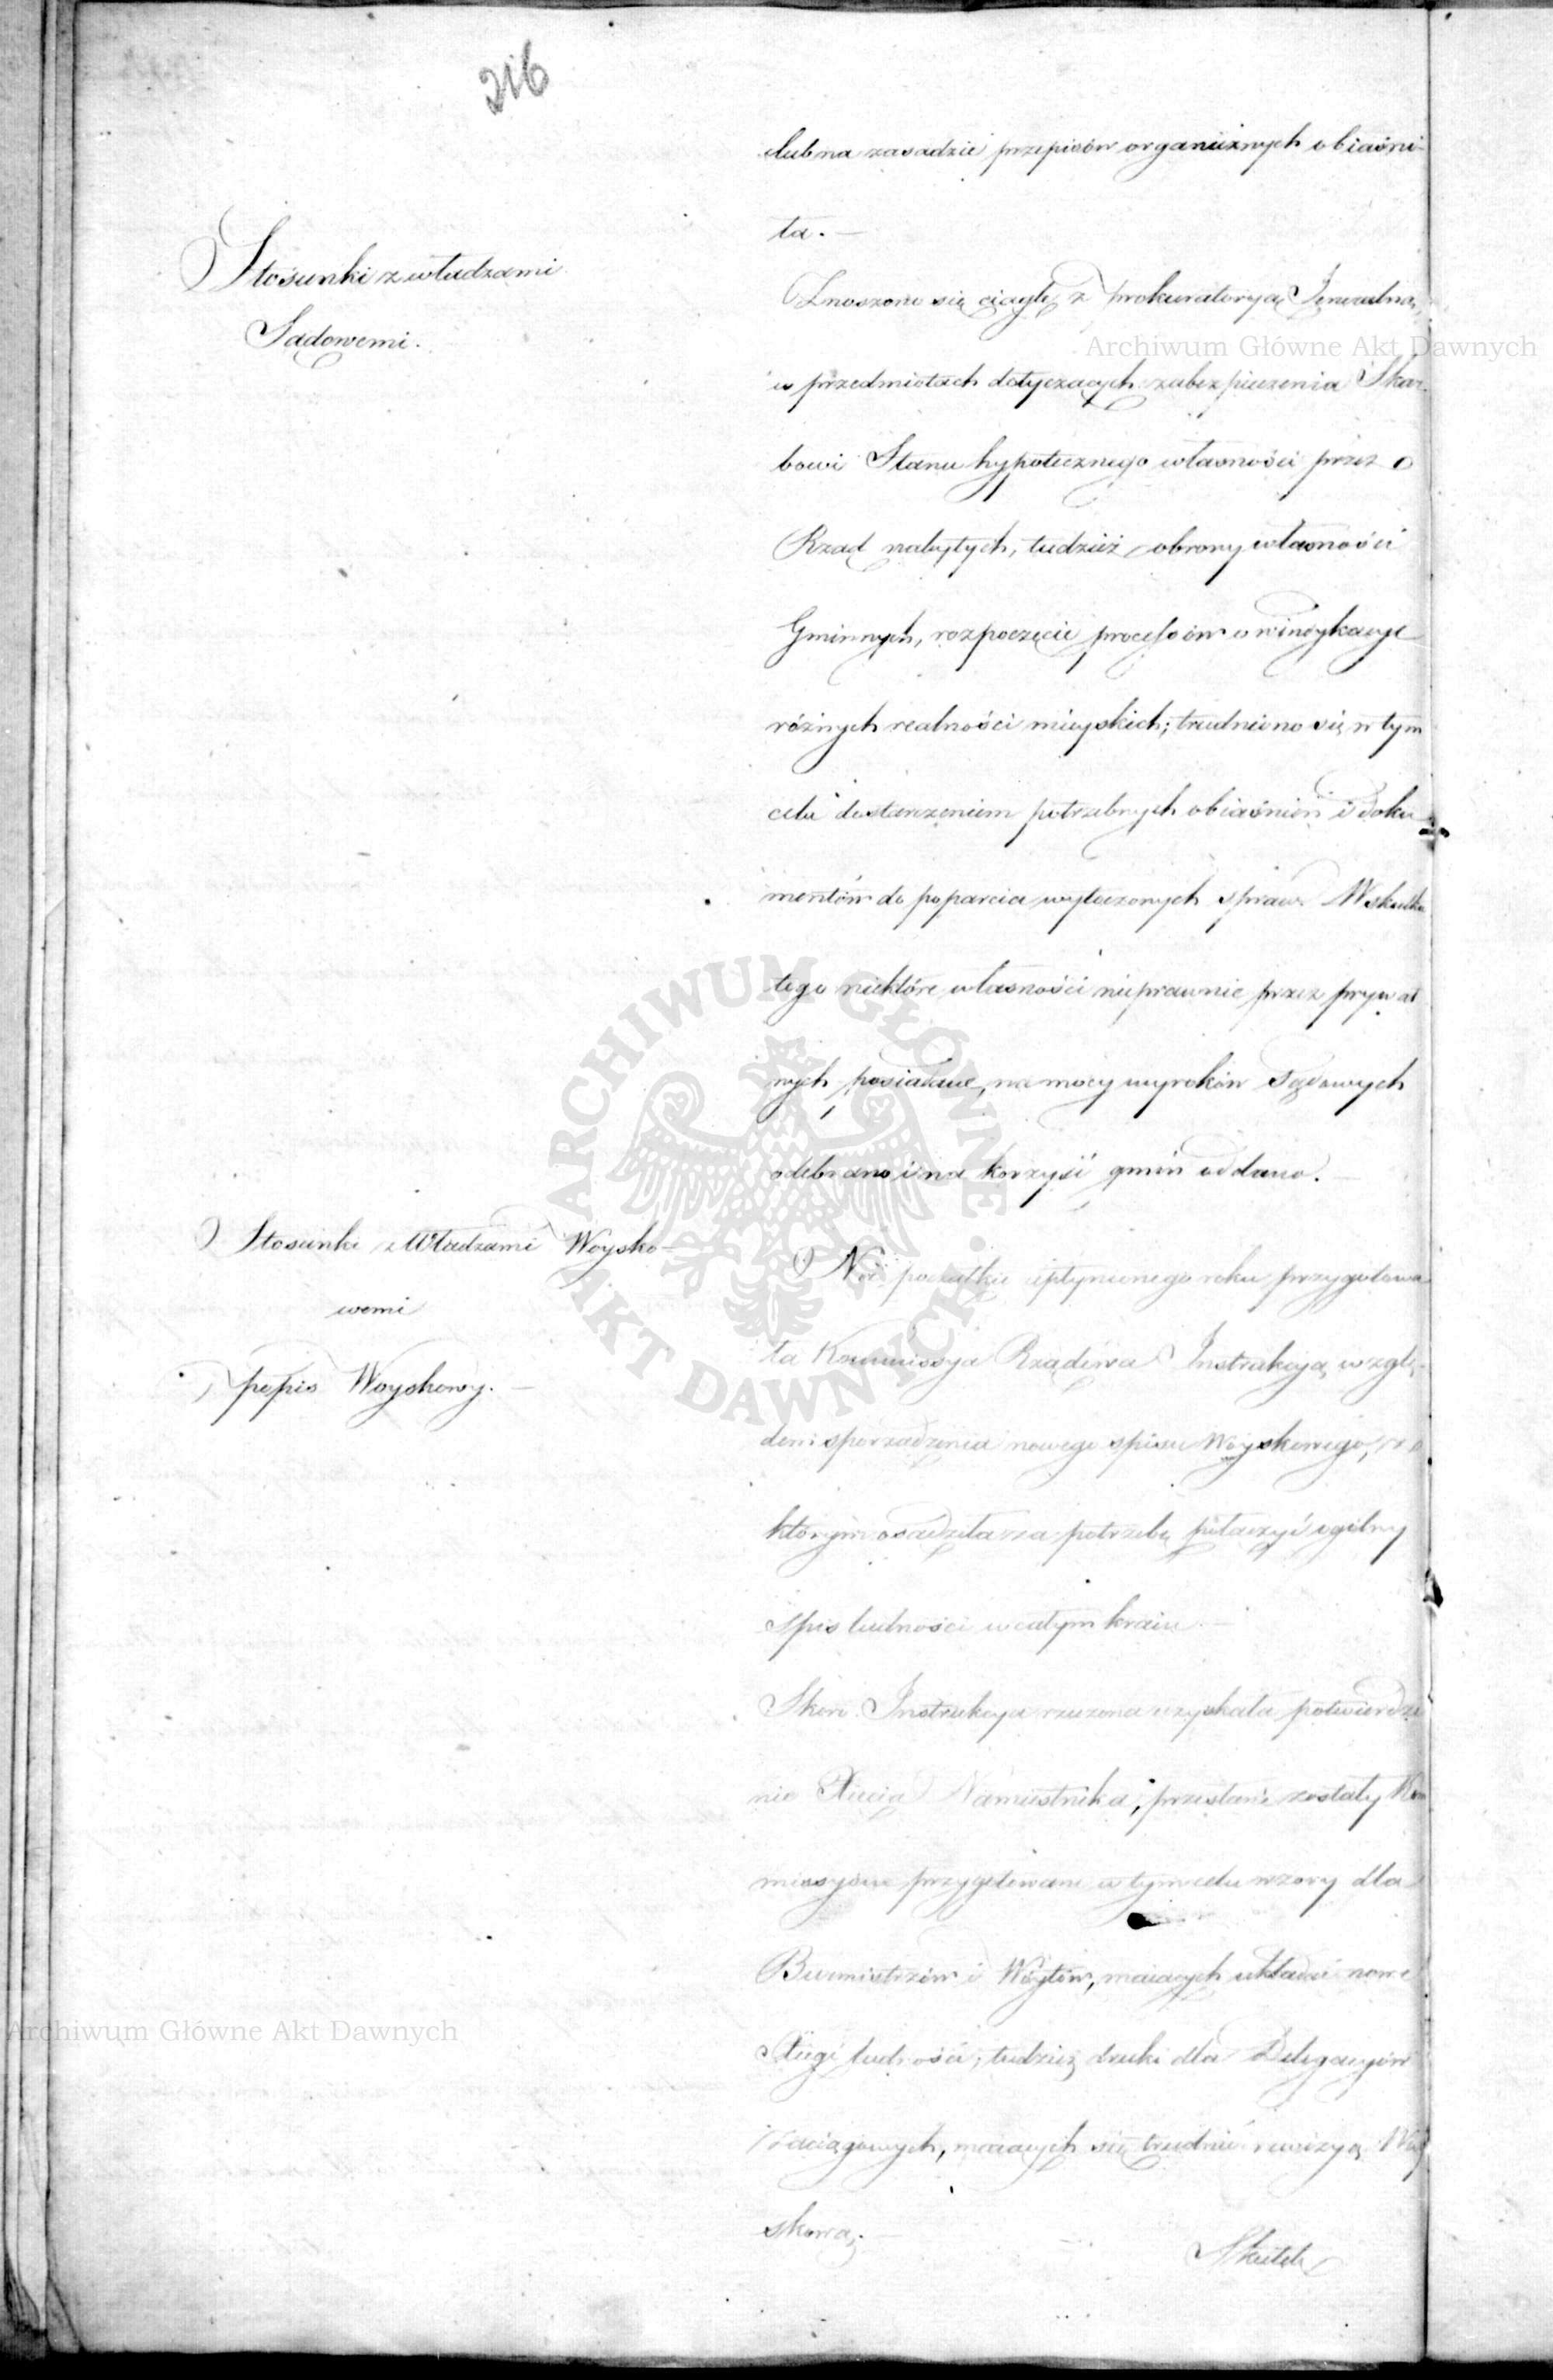 216
lub na zasadzie przepisów organicznych obiaśni-
ła. —
Stosunki z władzami
Sądowemi.
Znoszono się ciągle z prokuratoryą Jeneralną,
w przedmiotach dotyczących zabezpieczenia Skar-
bowi Stanu hypotecznego własności przez
Rząd nabytych, tudzież obrony własności
Gminnych, rozpoczęcie processów o windykacye
różnych realności mieyskich; trudniono się w tym
celu dostarczeniem potrzebnych obiaśnień i doku
mentów do poparcia wytoczonych spraw. W skutku
tego niektóre własności nieprawnie przez prywat
nych posiadane, na mocy wyroków Sądowych
odebrano i na korzyść gmin oddano. —
Stosunki z Władzami Woysko-
wemi
popis Woyskowy. —
Na początku upłynionego roku przygotowa
ła Kommissya Rządowa Instrukcyą wzglę-
dem sporządzenia nowego spisu Woyskowego, z
którym osądziła za potrzebę połączyć ogólny
spis ludności w całym kraiu. —
Skoro Instrukcya rzeczona uzyskała potwierdze
nie Xięcia Namiestnika, przesłane zostały Kom
missyom przygotowane w tym celu wzory dla
Burmistrzów i Wóytów, maiących układać nowe
Xięgi ludności, tudzież druki dla Delegacyów
Zaciągowych, maiących się trudnić rewizyą Woy
skową. —
Skutek
Archiwum Główne Akt Dawnych
Archiwum Główne Akt Dawnych
ARCHIWUM GŁÓWNE AKT DAWNYCH